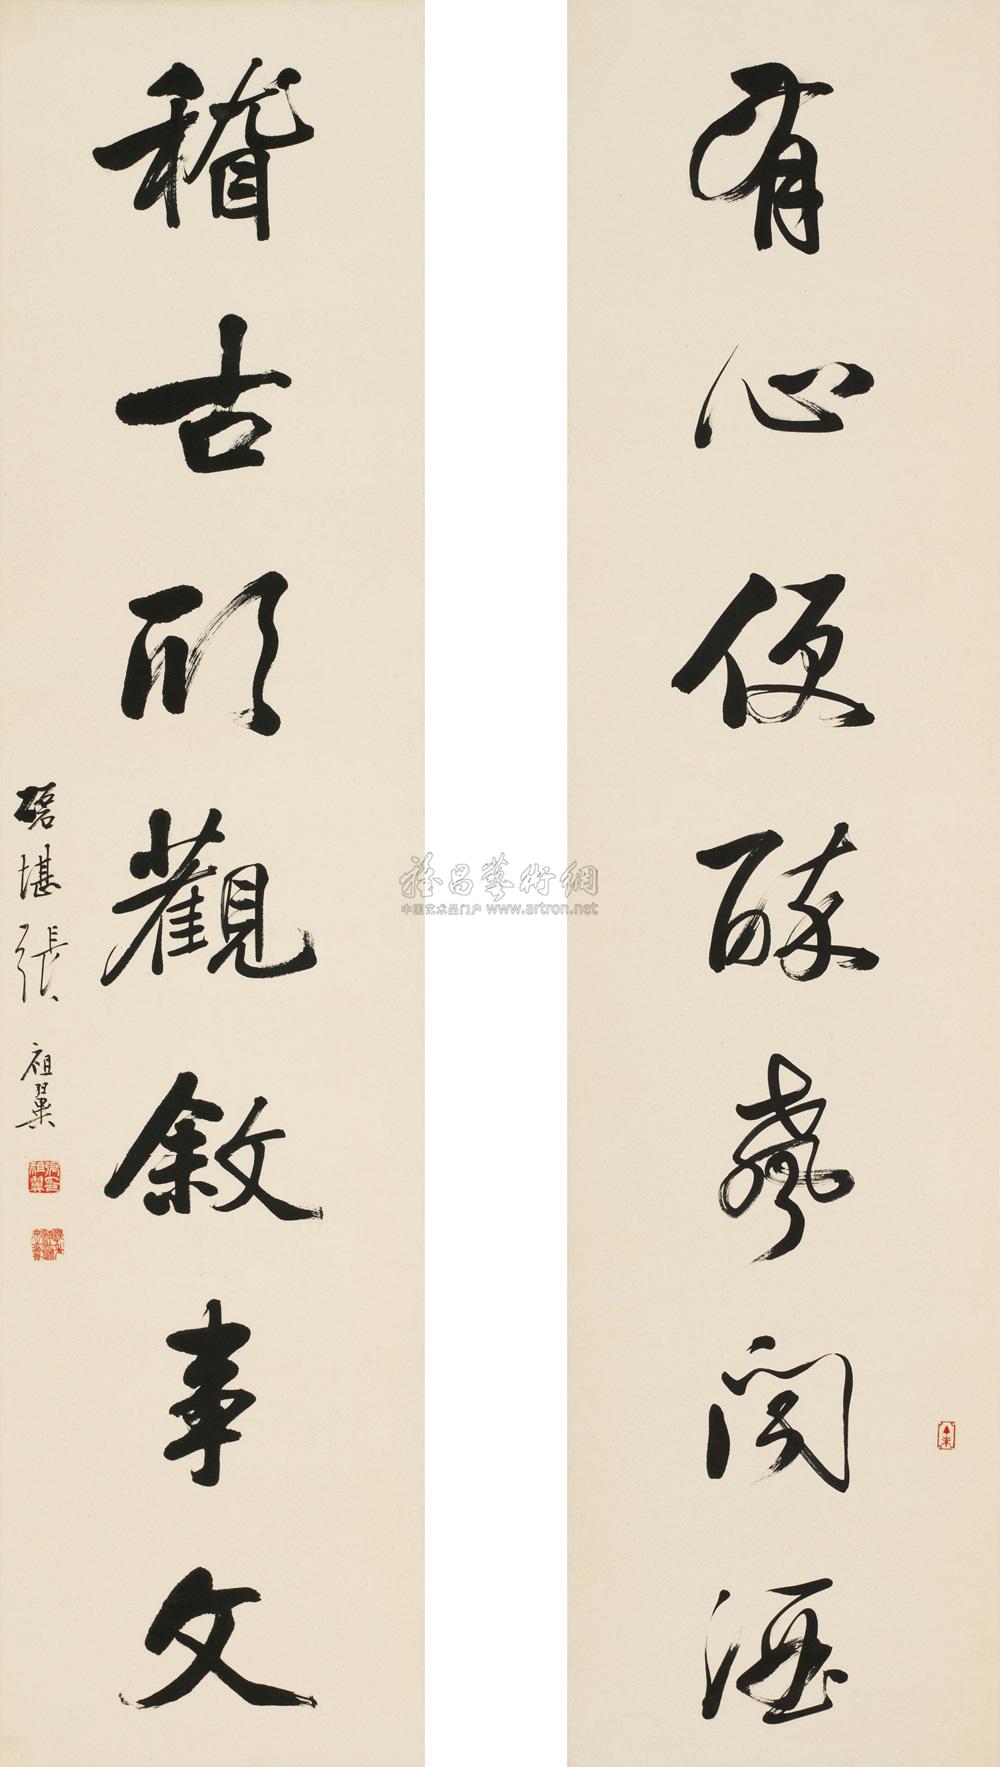 有心便醉聲聞酒
稽古觀敘事文
磊堪張祖翼
雅昌藝術網
中国艺术品门户 www.artron.net